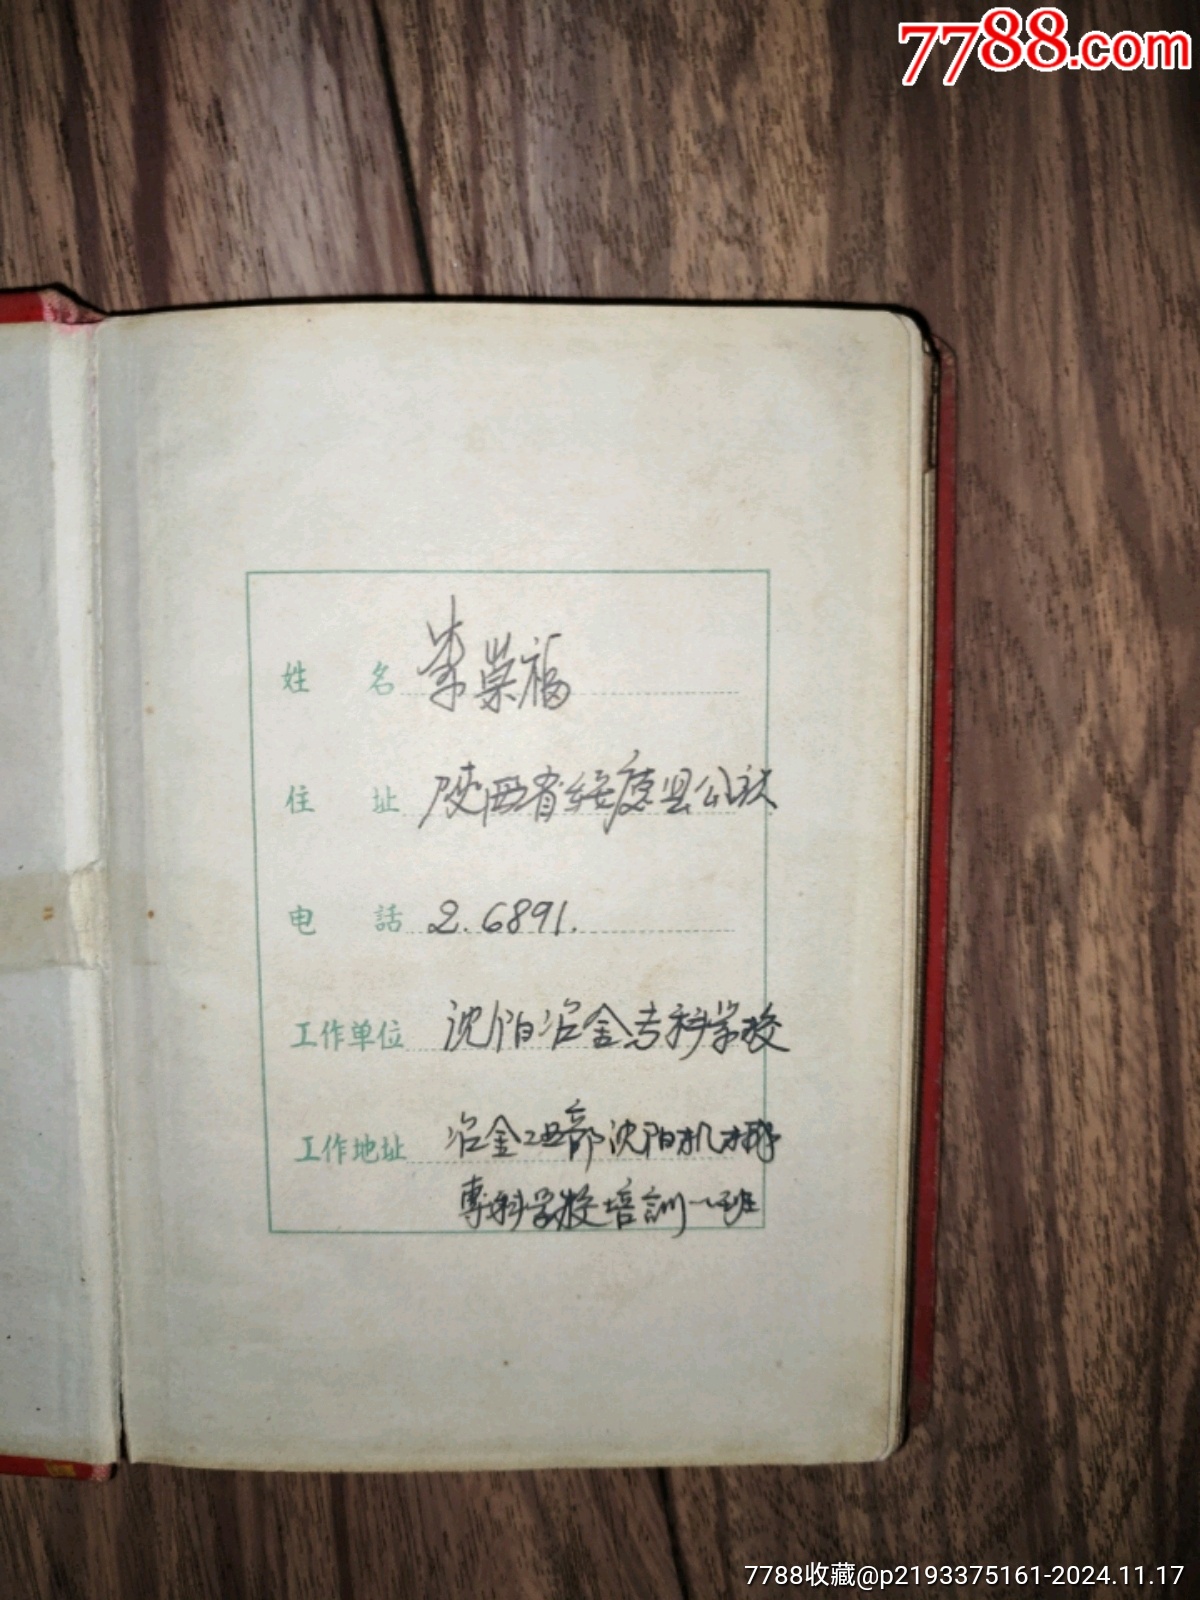 7788.com
姓 名 李荣福
住 址 陕西省绥德县公社
电 話 2.6891.
工作单位 沈阳冶金专科学校
工作地址 冶金工业部沈阳机械
專科学校培訓一班
7788收藏@p2193375161-2024.11.17